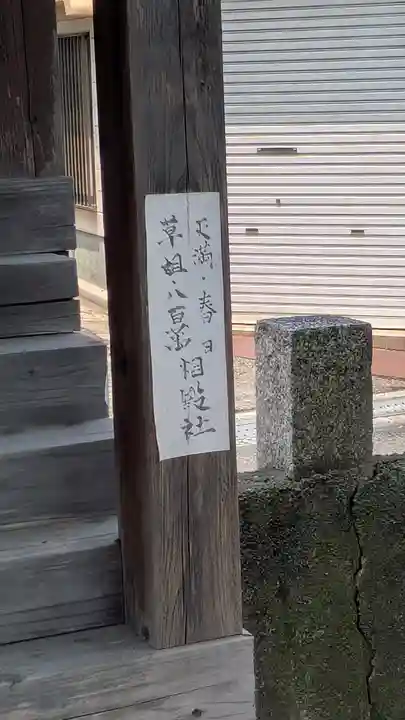 天満・春日
草姐八百萬相殿社